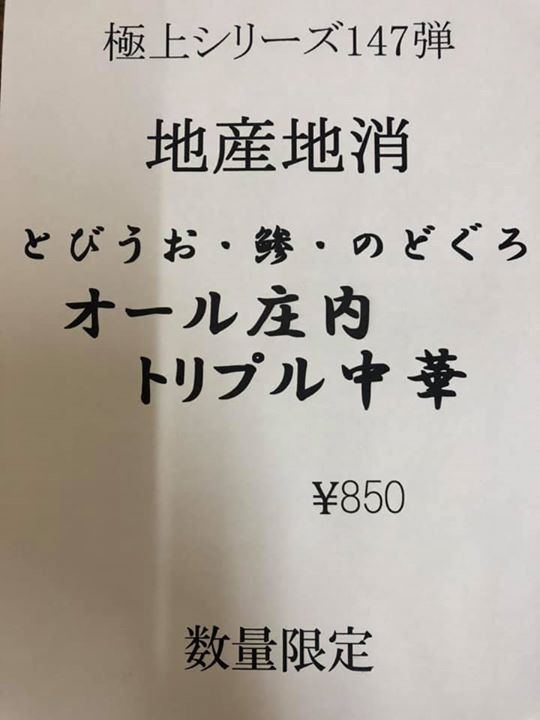 極上シリーズ147弾
地産地消
とびうお・鯵・のどぐろ
オール庄内
トリプル中華
¥850
数量限定